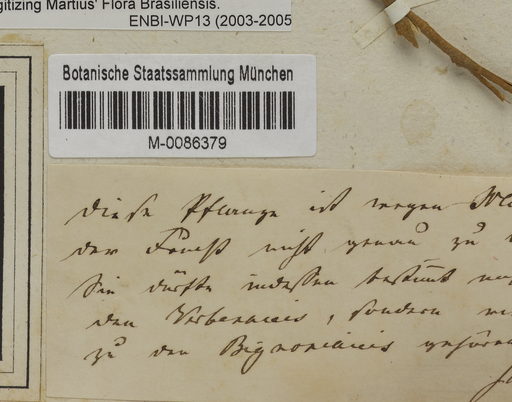 gitizing Martius' Flora Brasiliensis.
ENBI-WP13 (2003-2005
Botanische Staatssammlung München
M-0086379
Diese Pflanze ist wegen
der Frucht nicht genau zu
Sie dürfte indessen bestimmt
den Verbenaceis, sondern
zu den Bignoniaceis gehören